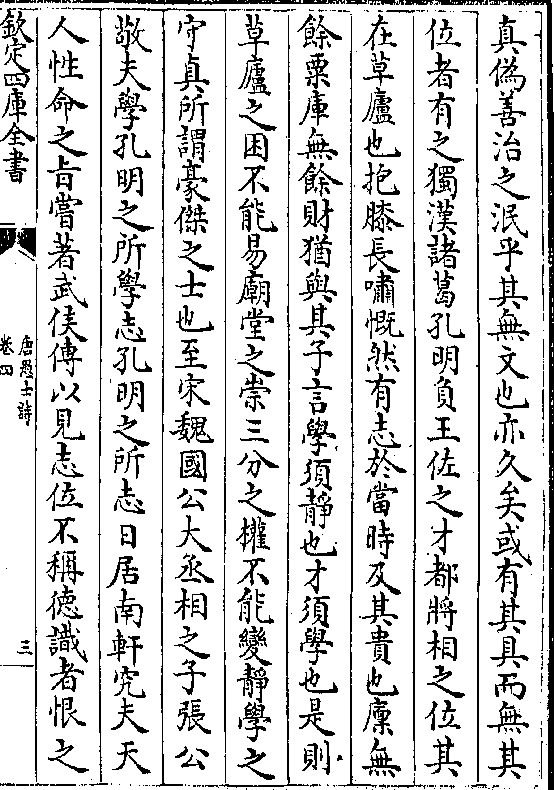 真偽善治之泯乎其無文也亦久矣或有其具而無其
位者有之獨漢諸葛孔明負王佐之才都將相之位其
在草廬也抱膝長嘯慨然有志於當時及其貴也廩無
餘粟庫無餘財猶與其子言學須靜也才須學也是則
草廬之困不能易廟堂之崇三分之權不能變靜學之
守真所謂豪傑之士也至宋魏國公大丞相之子張公
敬夫學孔明之所學志孔明之所志日居南軒究夫天
人性命之旨嘗著武侯傳以見志位不稱德識者恨之
欽定四庫全書
唐愚士詩
卷四
三